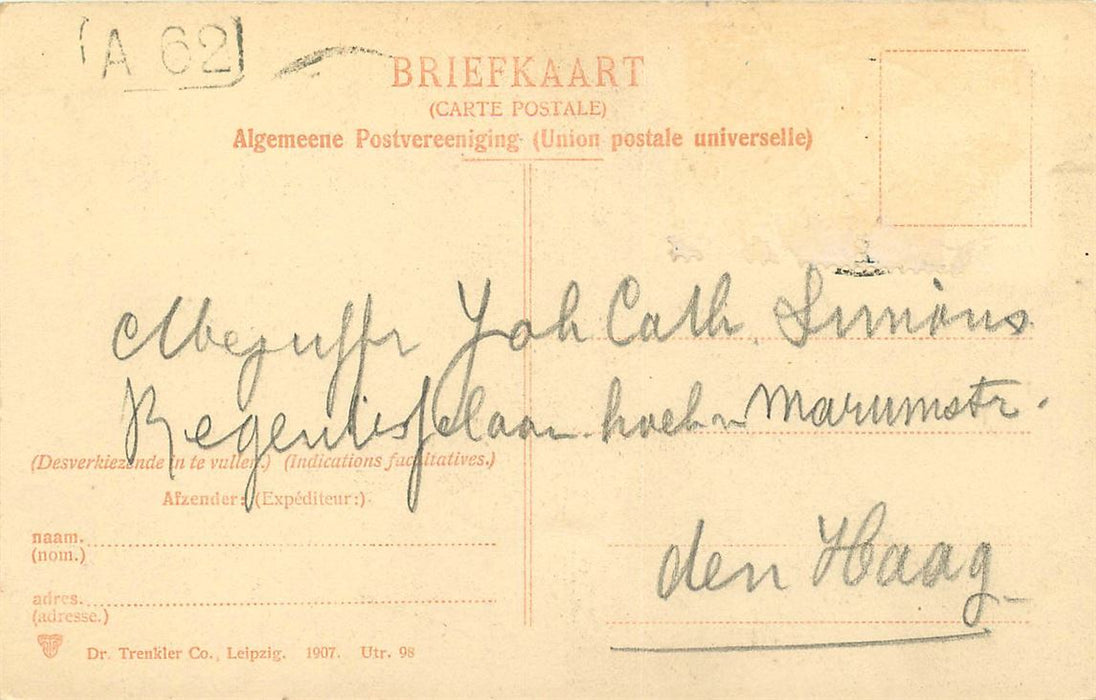 A 62
BRIEFKAART
(CARTE POSTALE)
Algemeene Postvereeniging (Union postale universelle)
Mejuffr Joh Cath. Simons
hoek v Marumstr.
den Haag
(Desverkiezende in te vullen.) (Indications facultatives.)
Afzender: (Expéditeur:)
naam.
(nom.)
adres.
(adresse.)
Dr. Trenkler Co., Leipzig. 1907. Utr. 98